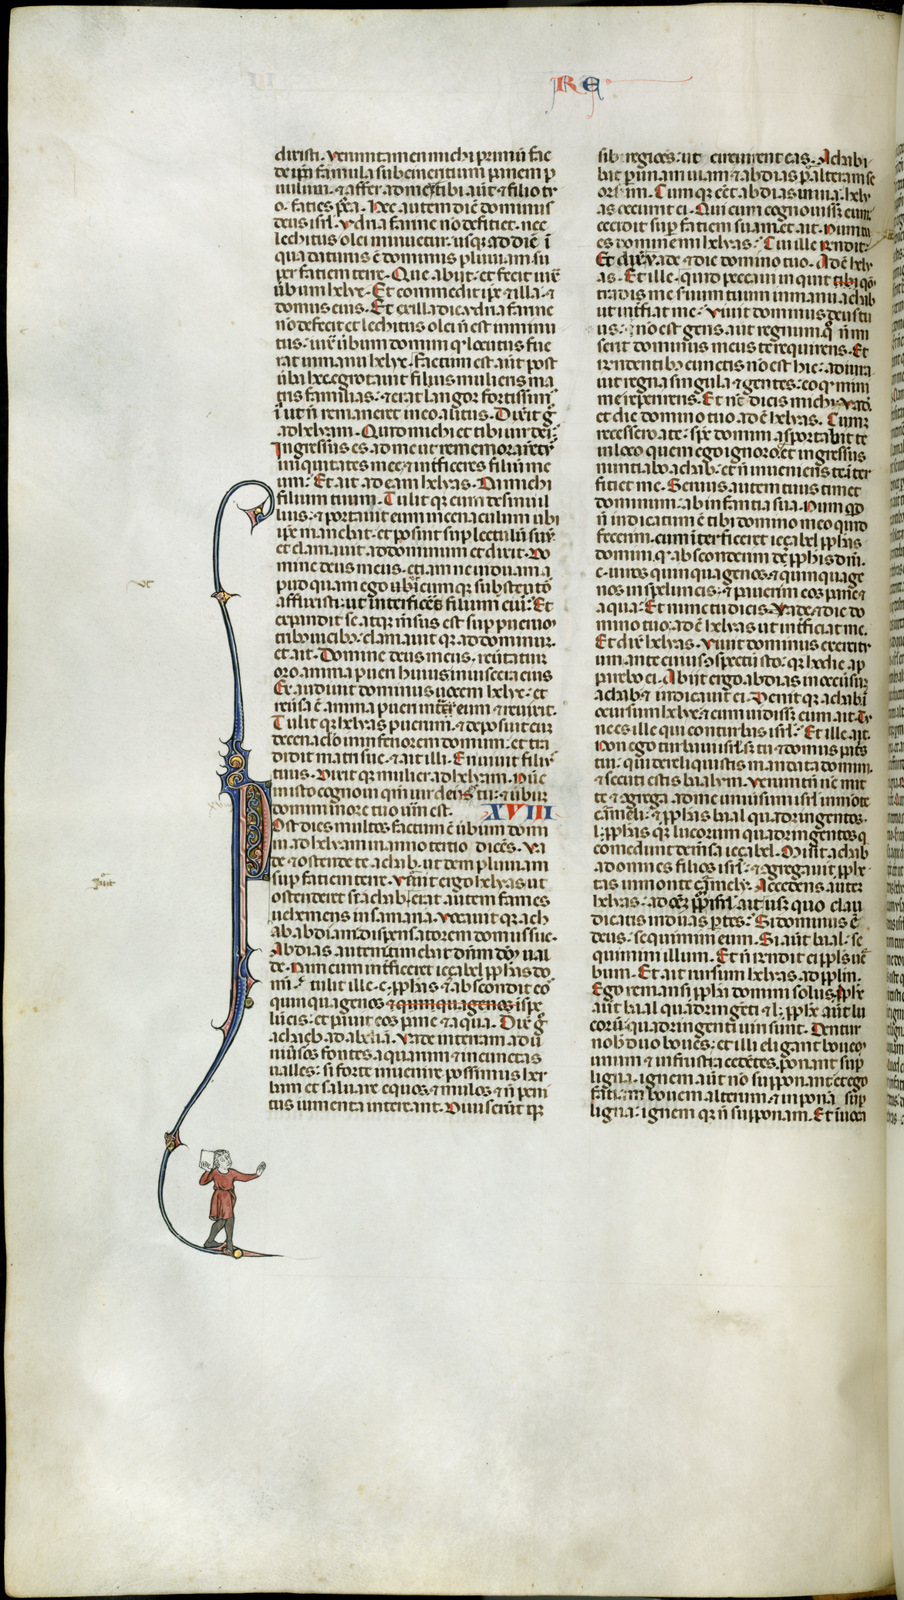 RE
dixisti. verumtamen michi primum fac
de ipsa famula subcinericium panem p
uulum. & affer ad me. tibi aut & filio tu
o. facies p̃ea. hec autem diẽ dominus
deus isrl. ydria farine nõ deficiet. nec
lechitus olei minuetur. usq; ad diẽ ĩ
qua daturus ẽ dominus pluuiam su
per faciem terre. Que abijt. et fecit iux̃
ũbum helye. Et commedit ipẽ & illa. &
domus eius. Et ex illa die ydria farine
nõ defecit et lechitus olei ñ est imminu
tus. iux̃ ũbum domini q̃ locutus fue
rat in manu helye. factum est aũt post
ũba hec egrotauit filius mulieris ma
tris familias. & erat langor fortissim9
ĩ ut ñ remaneret in eo alitus. Dixit g̃
ad helyam. Quid michi et tibi uir dei.
Ingressus es ad me ut rememorarẽtr
iniquitates mee. & int̃ficeres filium me
um. Et ait ad eam helyas. Da michi
filium tuum. Tulit que eum de sinu il
lius. & portauit eum in cenaculum ubi
ipẽ manebat. et posuit sup lectulũ suũ.
et clamauit ad dominum et dixit. Do
mine deus meus. etiam ne uiduam a
pud quam ego ubicumque substentor
afflixisti. ut interficẽs filium eiũ. Et
expandit se atq; m̃sus est sup puerum
tribus uicibus. clamauit q̃ ad dominum.
et ait. Domine deus meus. reũtatur
oro anima pueri huius in uiscera eius
Exaudiuit dominus uocem helye. et
reũsa ẽ anima pueri intra eum & reuixit.
Tulit q; helyas puerum. & deposuit eũ
de cenaclo in inferiorem domum. et tra
didit matri sue. & ait illi. En uiuit filius
tuus. Dixit que mulier ad helyam. Nũc
in isto cognoui qm uir dei es tu. & ũbum
domini in ore tuo uerum est. XVIII
Post dies multos factum ẽ ũbum domi
ni ad helyam in anno tertio dicẽs. Va
de & ostende te achab. ut dem pluuiam
sup faciem terre. ergo helyas ut
ostenderet se achab. erat autem fames
uehemens in samaria. Vocauit que ach
ab abdiam dispensatorem domus sue.
Abdias autem timebat dñm dẽy ual
de. Nam cum int̃ficeret iezabel pphãs do
mĩ. tulit ille .c. pphãs & abscondit eos
quinquagenos & quinquagenos i spe
luncis. et pauit eos pane & aqua. Dix̃ g̃
achab ad abdia. Vade in terram ad u
niũsos fontes aquarum & in cunctas
ualles. si forte inuenire possimus her
bam et saluare equos & mulos. & ñ peni
tus iumenta intereant. Diuiserũt q̃
sibi regiões. ut circuirent eas. Achab i
bat p unam uiam & abdias p alteram se
orsum. Cum que eẽt abdias in uia. hely
as occurrit ei. Qui cum cognouisset eum.
cecidit sup faciem suam. et ait. Num tu
es domine mi helyas. Cui ille rñdit.
Et dixit vade & dic domino tuo. Adẽ hely
as. Et ille. quid peccaui inquit tibi qm
tradis me seruum tuum in manu achab
ut int̃ficiat me. Viuit dominus deus tu
us. nõ est gens aut regnum q̃ ñ mi
serit dominus meus te requirens. Et
rñdentibus cunctis nõ est hic. adiura
uit regna singula & gentes. eo q; mini
me repereris. Et nũc dicis michi vade
et dic domino tuo adẽ helyas. Cumq;
recessero a te. spẽ domini asportabit te
in loco quem ego ignoro. et ingressus
nuntiabo achab. et ñ inueniens te int̃
ficiet me. Seruus autem tuus timet
dominum. ab infantia sua. Num qd
ñ indicatum ẽ tibi domino meo quid
fecerim. cum interficeret iezabel pphãs
domini. q; absconderim de pphĩs dñi.
.c. uiros quinquagenos. & quinquage
nos in speluncis. & pauerim eos pane &
aqua. Et nunc tu dicis. Vade & dic do
mino tuo. adẽ helyas ut int̃ficiat me.
Et dix̃ helyas. Viuit dominus exercitu
um. ante cuius cspectũ sto. q; hodie ap
parebo ei. Abijt ergo abdias in occursum
achab. & indicauit ei. Venit que achab i
occursum helye. & cum uidisset eum. ait. Tu
nees ille qui conturbas isrl. Et ille ait.
Non ego turbaui isrl. s; tu & domus pats
tui. qui dereliquistis mandata domini.
& secuti estis baalym. Verumtñ nc mit
te & ogrega ad me uniũsum isrl in monte
carmeli. & pphãs baal quadringentos.
.l. pphãs que lucorum quadringentos q
comedunt de msa iezabel. Misit achab
ad omnes filios isrl. & ogregauit pphe
tas in monte carmely. Accedens autem
helyas. ad oẽm pplm isrl ait. usq; quo clau
dicatis in duas ptes. Si dominus ẽ
deus. sequimini eum. Si aũt baal. se
quimini illum. Et ñ rñdit ei ppls uẽ
bum. Et ait rursum helyas ad pplm.
Ego remansi ppha domini solus. pphe
aũt baal quadringẽti & l. pphe aũt lu
corũ. quadringenti uiri sunt. Dentur
nob duo boues. et illi eligant bouem
unum & in frusta cedẽtes. ponant sup
ligna. ignem aũt nõ supponant. et ego
faciam bouem alterum. & inponã sup
ligna. ignem que ñ supponam. Et iuoca